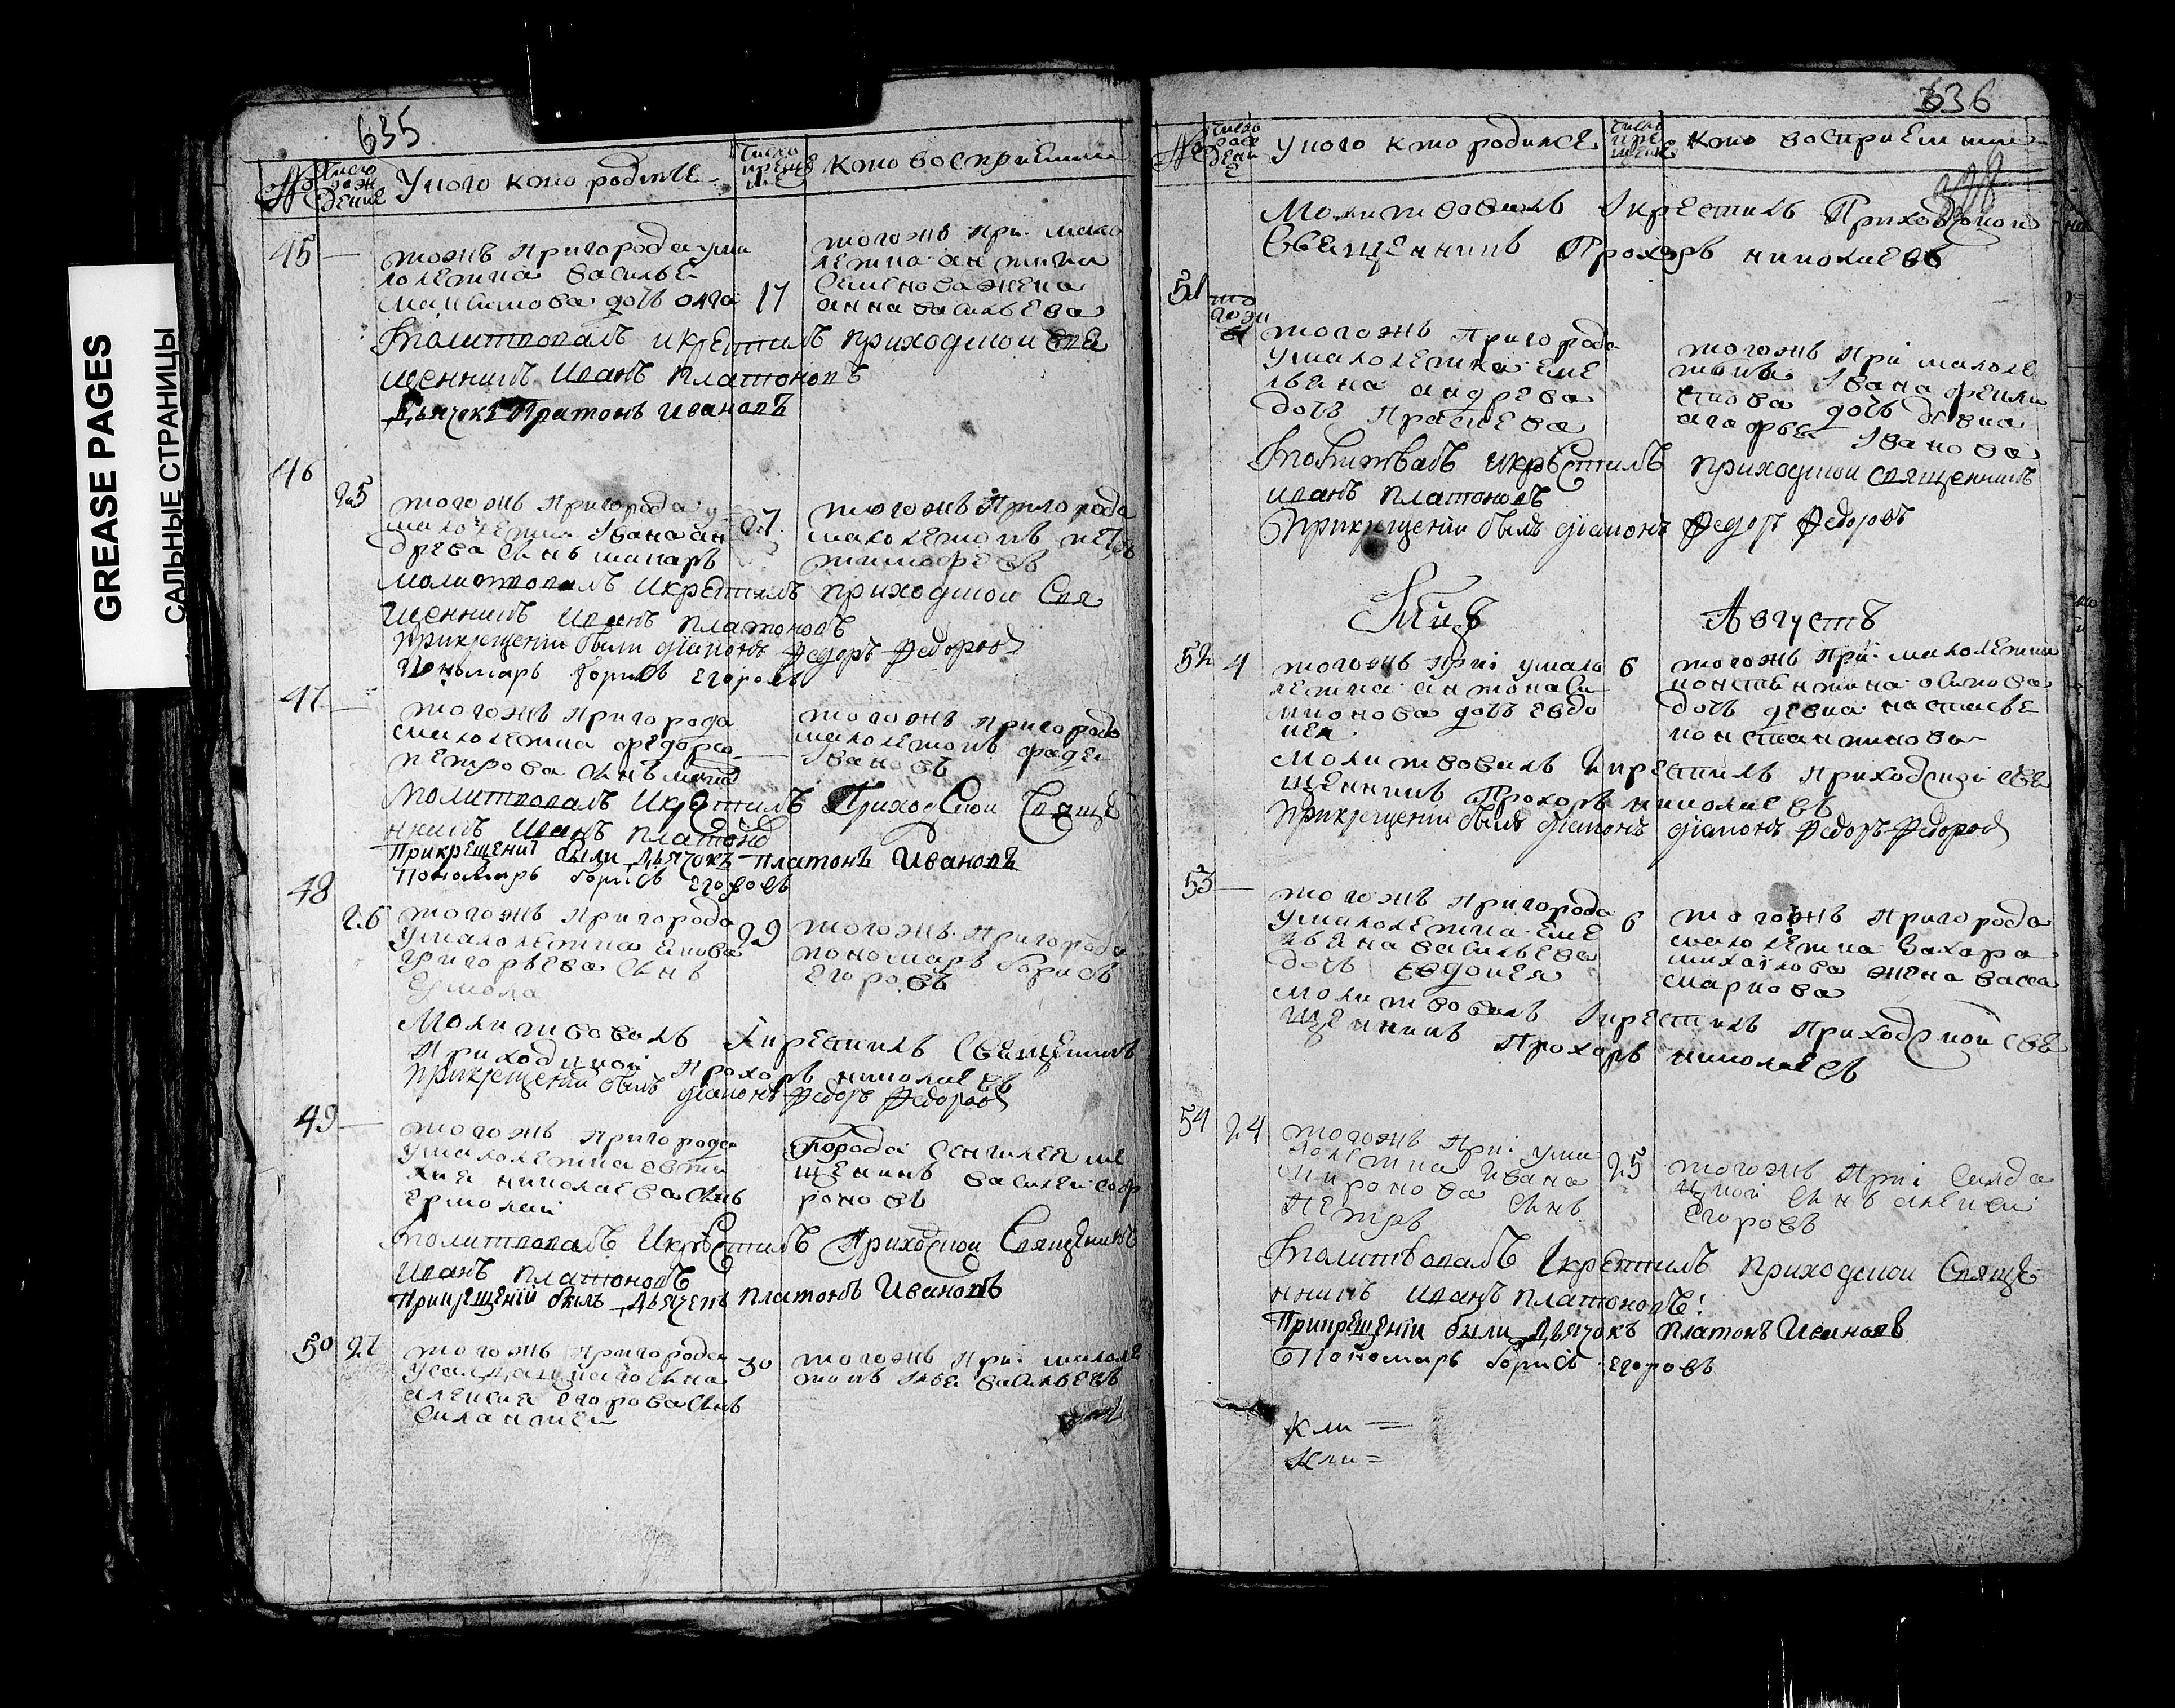 GREASE PAGES
САЛЬНЫЕ СТРАНИЦЫ
635
№ Число рождение У кого кто родилсе Число крещение кто восприемни
45 — тогожъ пригорода ума
лолетка василье
максимова дочь олга 17
тогожъ при: мало
летка
семенова жена
анна васильева
молитвовалъ икрестилъ приходской свя
щенникъ Иванъ Платоновъ
Дьячокъ Платонъ Ивановъ
46
25 тогожъ пригорода у
малолетка Iвана ан
дреева сынъ макаръ
27 тогожъ пригорода
малолетокъ петръ
тимофеевъ
молитвовалъ Икрестилъ приходской Свя
щенникъ Иванъ Платоновъ
прикрещении были дiаконъ Федоръ Федоровъ
Пономарь борисъ егоровъ
47 — тогожъ пригорода
малолетка федора
петрова сынъ
— тогожъ пригорода
малолетокъ фадеи
Iвановъ
Молитвовалъ Икрестилъ Приходской Свяще
нникъ Иванъ Платоновъ
Прикрещенiи были Дьячокъ Платонъ Ивановъ
Пономарь борисъ егоровъ
48
26 тогожъ пригорода
умалолетка якова
григорьева сынъ
ермола
29 тогожъ пригорода
пономарь борисъ
егоровъ
Молитвовалъ Iкрестилъ Свещенникъ
Приходцкой Прохоръ николаевъ
прикрещении былъ дiаконъ Федоръ Федоровъ
49 — тогожъ пригорода
умалолетка
николаева сынъ
ермолаи
Города Сенгилея ме
щенинъ василеи соф
роновъ
молитвовалъ Икрестилъ Приходской Священникъ
Иванъ Платоновъ
Прикрещенiи былъ Дьячекъ Платонъ Ивановъ
50 тогожъ пригорода
усалдацкого сына
алексея егорова сынъ
силантеи
30 тогожъ при: малоле
токъ васильевъ
636
№ Число рождение У кого кто родилсе Число крещение кто восприемни
Молитвовалъ Iкрестилъ Приходской
Свещенникъ Прохоръ николаевъ
51 тогожъ
тогожъ пригорода
умалолетка еме
льяна андрева
дочь Прасковя
тогожъ при малоле
тока Iвана
дочь девка
агафья Iванова
молитвовалъ икрестилъ приходской священникъ
иванъ платоновъ
прикрещении былъ дiаконъ Федоръ Федоровъ
Августъ
52 4 тогожъ при: умало
летка антона си
мионова дочь евдо
кея
6 тогожъ при: малолетка
константина
дочь девка настасье
константинова
молитвовалъ Iкрестилъ приходской све
щенникъ Прохоръ николаевъ
прикрещении былъ дiаконъ дiаконъ Федоръ Федоровъ
53 — тогожъ пригорода
умалолетка еме
льяна васильева
дочь евдокея
6 тогожъ пригорода
малолетка Захара
михаилова жена васса
маркова
молитвовалъ Iкрестилъ приходской све
щенникъ Прохоръ николаевъ
54 24 тогожъ при: ума
лолетка Ивана
миронова сынъ
петръ
25 тогожъ при: салда
цкой сынъ алексеи
егоровъ
Молитвовалъ Iкрестилъ приходской Свяще
нникъ Иванъ Платоновъ:
Прикрещенiи были Дьячокъ Платонъ Ивановъ
Пономарь борисъ егоровъ